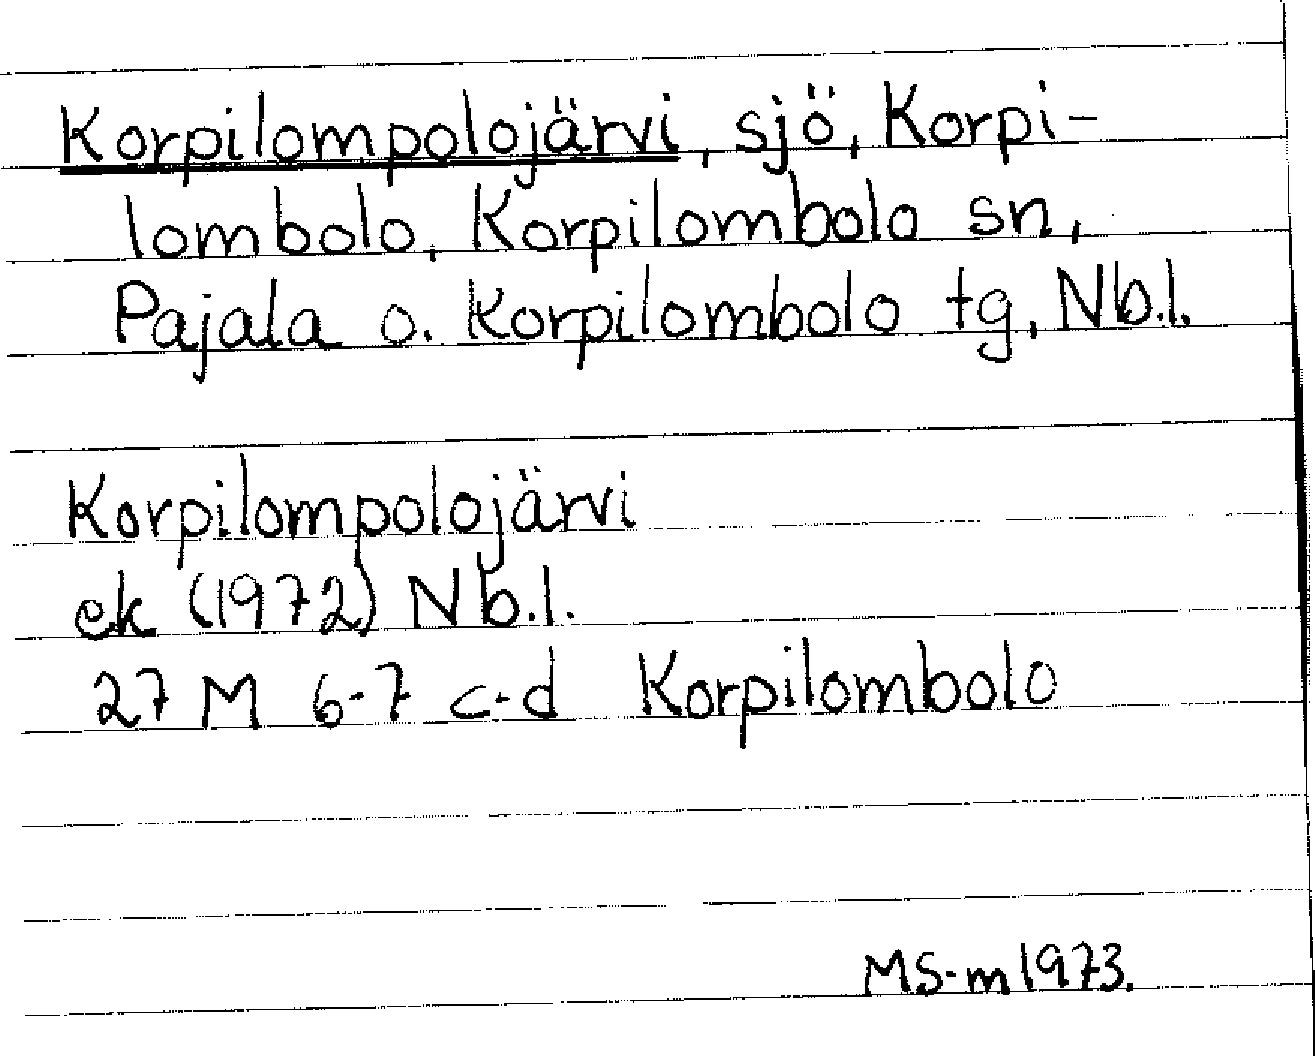 Korpilompolojärvi, sjö, Korpi-
lombolo, Korpilombolo sn,
Pajala o. Korpilombolo tg, Nb.l.
Korpilompolojärvi
ek (1972) Nb.l.
27 M 6-7 c-d Korpilombolo
MS-m 1973.